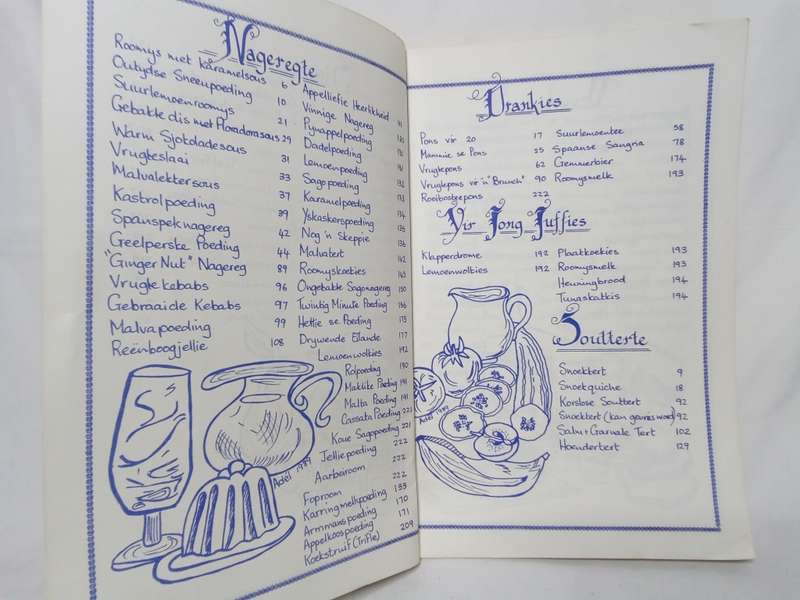 Nageregte
Roomys met karamelsous 6
Outydse Sneeupoeding 10
Suurlemoenroomys 21
Gebakte dis met 29
Warm Sjokoladesous 31
Vrugteslaai 33
Malvalektersous 37
Kastrolpoeding 39
Spanspeknagereg 42
Geelperske Poeding 44
"Ginger Nut" Nagereg 89
Vrugtekebabs 96
Gebraaide Kebabs 97
Malvapoeding 99
Reënboogjellie 108
Appelliefie Heerlikheid
Vinnige Nagereg
Pynappelpoeding
Dadelpoeding
Lemoenpoeding
Sagopoeding
Karamelpoeding
Yskaskerspoeding
Nog 'n Skeppie
Malvatert
Roomyskoekies
Ongebakte Sagonagereg 150
Twintig Minute Poeding
Hettie se Poeding 175
Drywende Eilande 177
Lemoenwolkies 192
Rolpoeding 190
Maklike Poeding 191
Malta Poeding 191
Cassata Poeding 221
Koue Sagopoeding 221
Jelliepoeding 222
Aarbeiroom 222
Foproom 222
Karringmelkpoeding
Armmanspoeding 170
Appelkoospoeding 171
Koekstruif (Trifle) 209
Adél 1989
Drankies
Pons vir 20 17
Mammie se Pons 55
Vrugtepons 62
Vrugtepons vir 'n "Brunch" 90
Rooibosteepons 222
Suurlemoentee 58
Spaanse Sangria 78
Gemmerbier 174
Roomysmelk 193
Vir Jong Juffies
Klapperdrome 192
Lemoenwolkies 192
Plaatkoekies 193
Roomysmelk 193
Heuningbrood 194
Tunaskatkis 194
Soutterte
Snoektert 9
Snoekquiche 18
Korslose Souttert 92
Snoektert (kan gevries word) 92
Salm & Garnale Tert 102
Hoendertert 129
Adél 1989